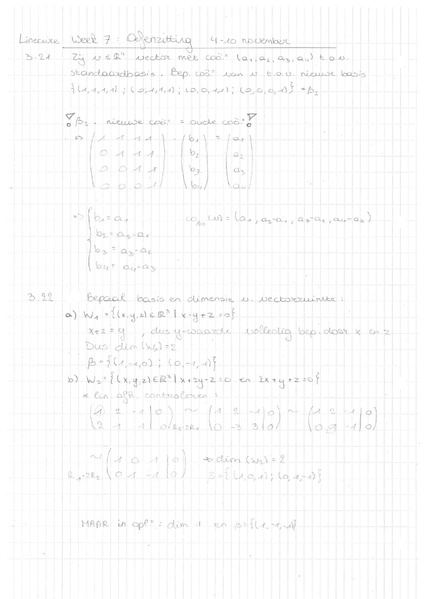 Lineaire Week 7: Oefenzitting 4-10 november
3.21 Zij v ∈ ℝ⁴ vector met coö.ⁿ (a₁, a₂, a₃, a₄) t.o.v.
standaardbasis. Bep. coöⁿ van v t.o.v. nieuwe basis
{(1,1,1,1) ; (0,1,1,1) ; (0,0,1,1) ; (0,0,0,1)} = β₂
β₂ . nieuwe coöⁿ = oude coöⁿ
⇒ (1 1 1 1) (b₁) = (a₁)
(0 1 1 1) (b₂) (a₂)
(0 0 1 1) (b₃) (a₃)
(0 0 0 1) (b₄) (a₄)
⇒ { b₁ = a₁ co_β₂(v) = (a₁, a₂-a₁, a₃-a₂, a₄-a₃)
b₂ = a₂-a₁
b₃ = a₃-a₂
b₄ = a₄-a₃
3.22 Bepaal basis en dimensie v. vectorruimte:
a) W₁ = {(x,y,z) ∈ ℝ³ | x-y+z=0}
x+z = y , dus y-waarde volledig bep. door x en z
Dus dim(W₁)=2
β = {(1,-1,0) ; (0,-1,1)}
b) W₂ = {(x,y,z) ∈ ℝ³ | x+2y-z=0 en 2x+y+z=0}
* lin. afh. controleren:
(1 2 -1 | 0) ~ (1 2 -1 | 0) ~ (1 2 -1 | 0)
(2 1 1 | 0) (0 -3 3 | 0) (0 1 -1 | 0)
~ (1 0 1 | 0) ⇒ dim(W₂) = 2
(0 1 -1 | 0) β = {(1,0,1) ; (0,1,-1)}
MAAR in oplⁿ: dim 1 en β={(1,-1,-1)}